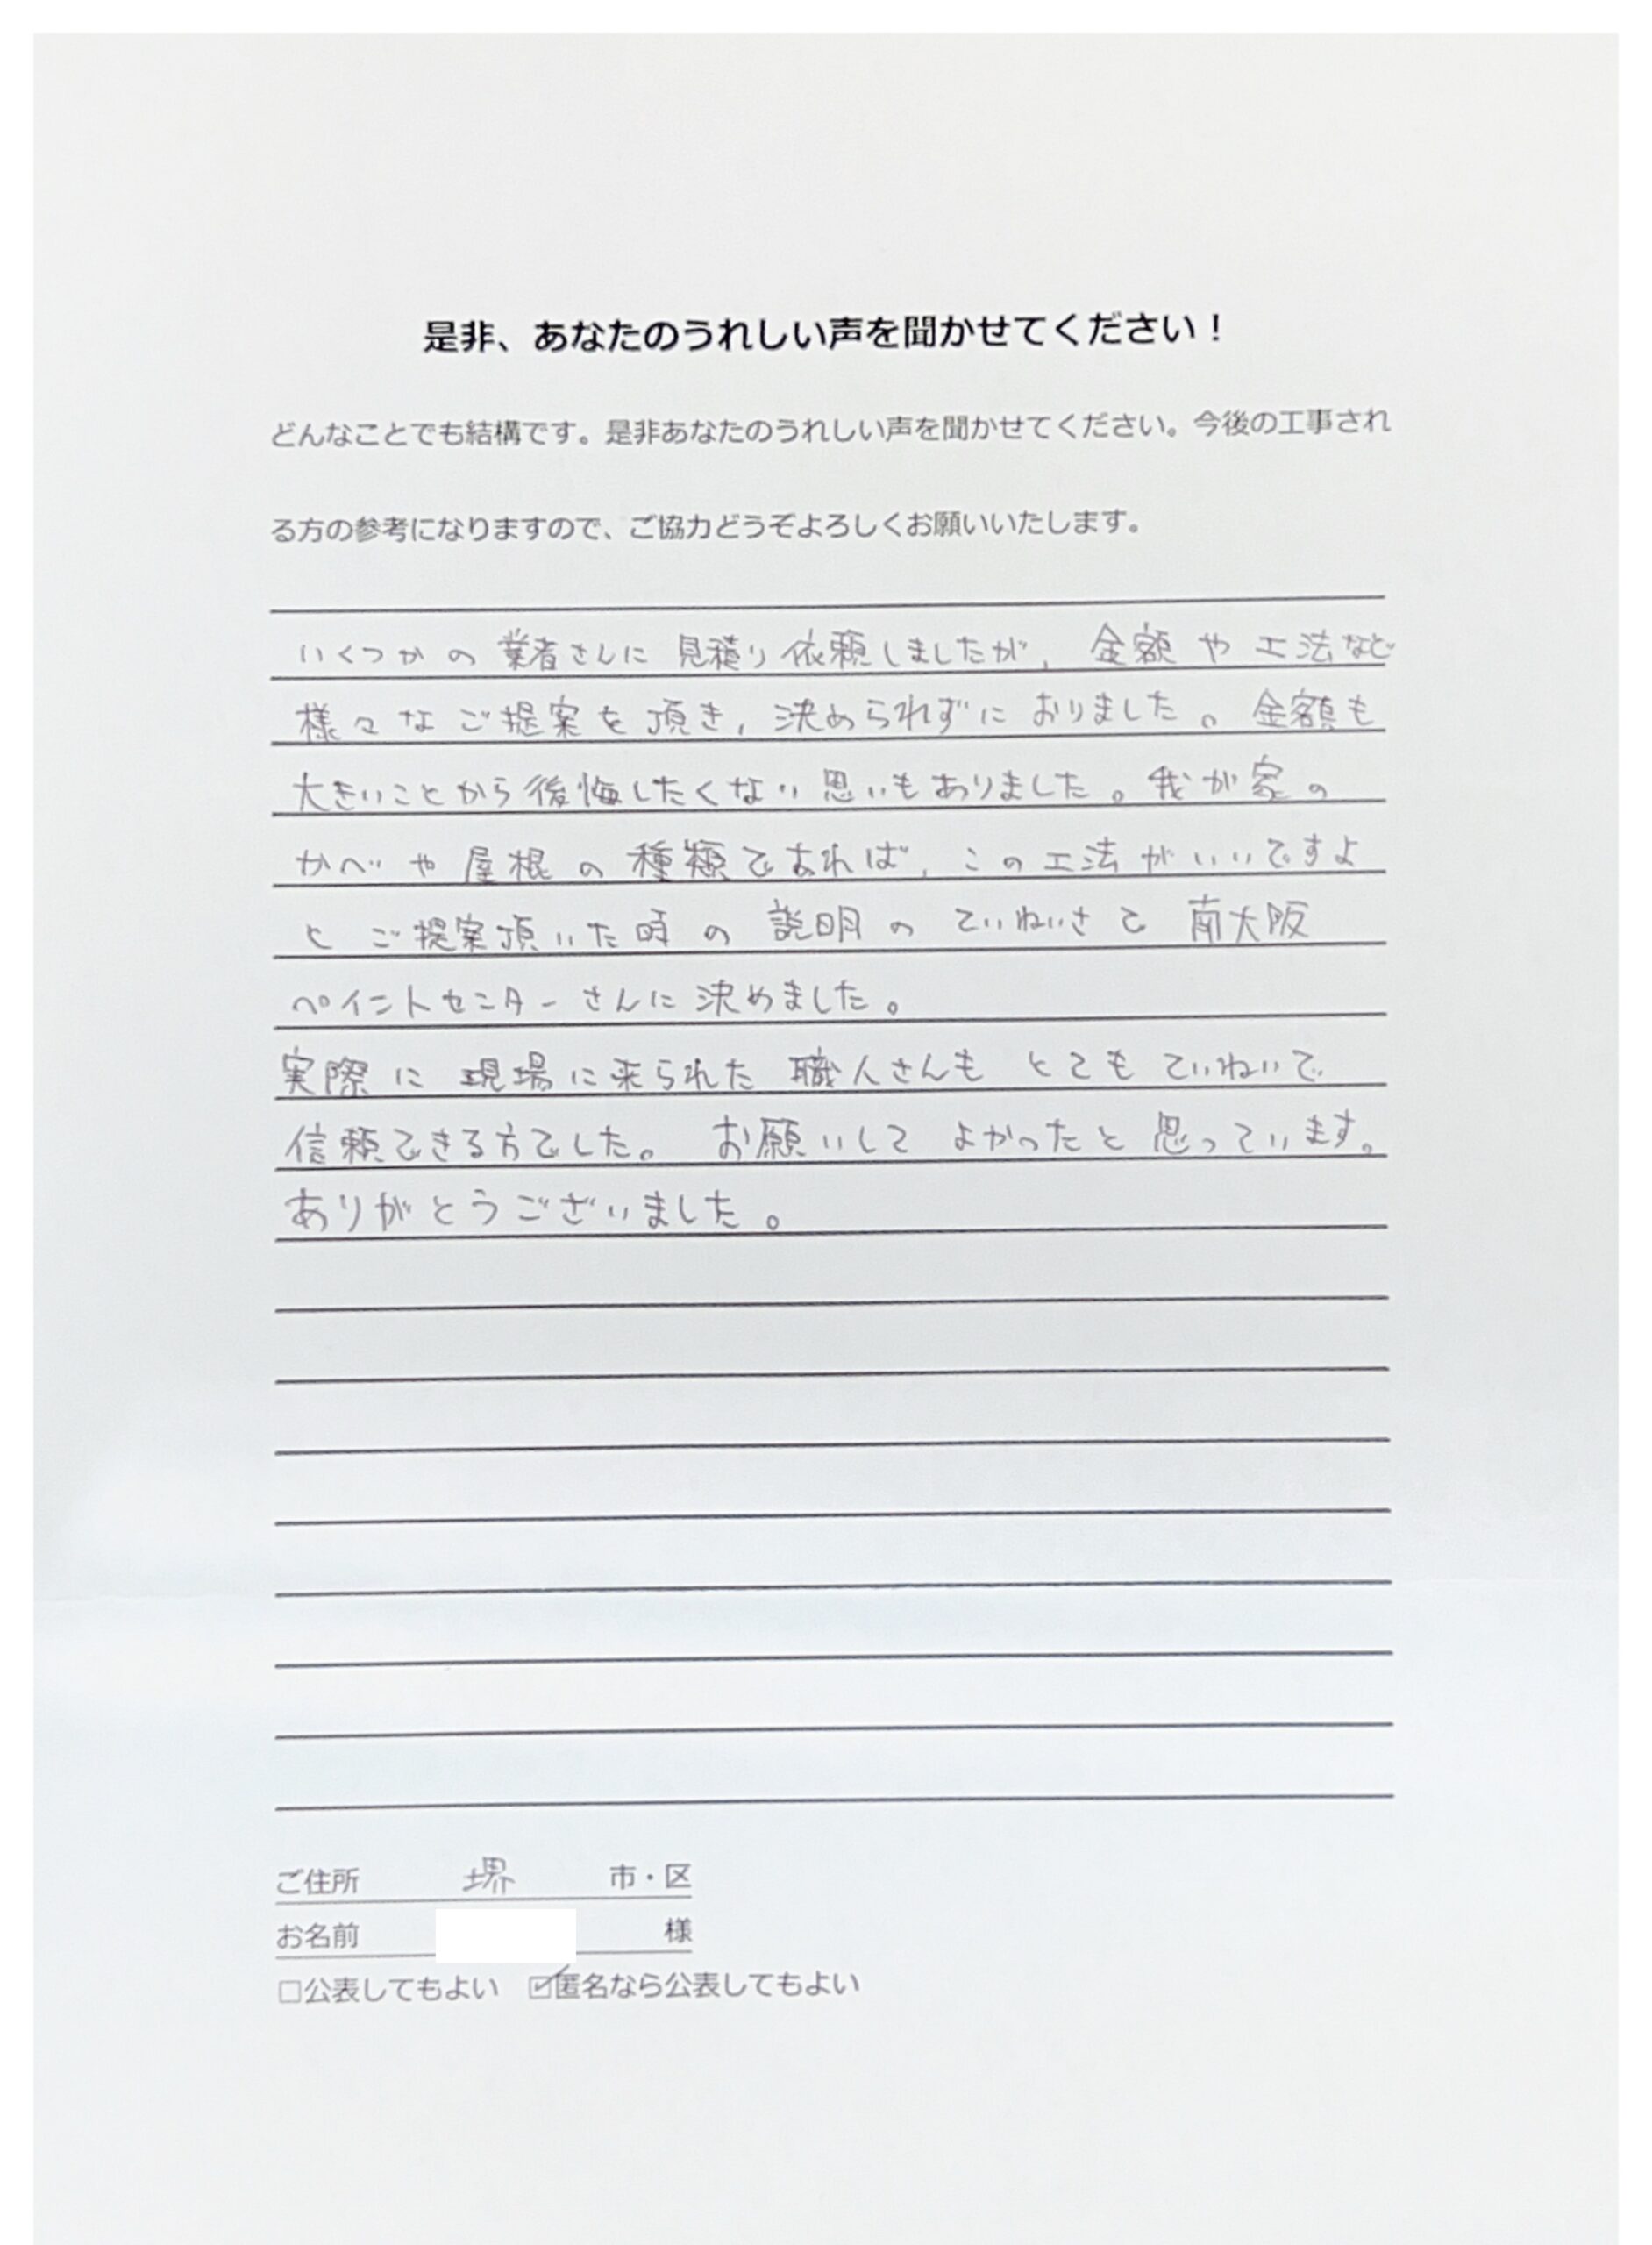 是非、あなたのうれしい声を聞かせてください！
どんなことでも結構です。是非あなたのうれしい声を聞かせてください。今後の工事され
る方の参考になりますので、ご協力どうぞよろしくお願いいたします。
いくつかの業者さんに見積り依頼しましたが、金額や工法など
様々なご提案を頂き、決められずにおりました。金額も
大きいことから後悔したくない思いもありました。我が家の
かべや屋根の種類であれば、この工法がいいですよ
とご提案頂いた時の説明のていねいさで南大阪
ペイントセンターさんに決めました。
実際に現場に来られた職人さんもとてもていねいで
信頼できる方でした。お願いしてよかったと思っています。
ありがとうございました。
ご住所 堺 市・区
お名前 様
□公表してもよい ☑匿名なら公表してもよい